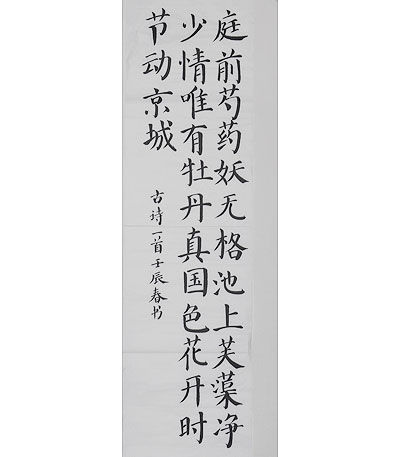 庭前芍药妖无格池上芙蕖净
少情唯有牡丹真国色花开时
节动京城
古诗一首壬辰春书